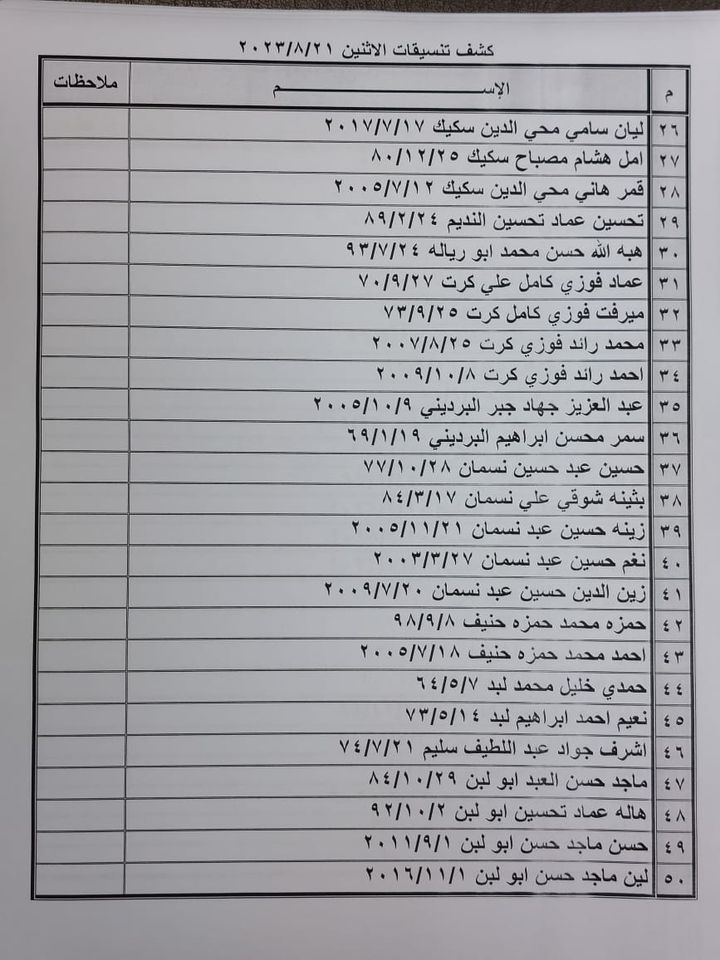 كشف تنسيقات الاثنين ٢٠٢٣/٨/٢١
م الإســـــــــم ملاحظات
٢٦ ليان سامي محي الدين سكيك ٢٠١٧/٧/١٧
٢٧ امل هشام مصباح سكيك ٨٠/١٢/٢٥
٢٨ قمر هاني محي الدين سكيك ٢٠٠٥/٧/١٢
٢٩ تحسين عماد تحسين النديم ٨٩/٢/٢٤
٣٠ هبه الله حسن محمد ابو رياله ٩٣/٧/٢٤
٣١ عماد فوزي كامل علي كرت ٧٠/٩/٢٧
٣٢ ميرفت فوزي كامل كرت ٧٣/٩/٢٥
٣٣ محمد رائد فوزي كرت ٢٠٠٧/٨/٢٥
٣٤ احمد رائد فوزي كرت ٢٠٠٩/١٠/٨
٣٥ عبد العزيز جهاد جبر البرديني ٢٠٠٥/١٠/٩
٣٦ سمر محسن ابراهيم البرديني ٦٩/١/١٩
٣٧ حسين عبد حسين نسمان ٧٧/١٠/٢٨
٣٨ بثينه شوقي علي نسمان ٨٤/٣/١٧
٣٩ زينه حسين عبد نسمان ٢٠٠٥/١١/٢١
٤٠ نغم حسين عبد نسمان ٢٠٠٣/٣/٢٧
٤١ زين الدين حسين عبد نسمان ٢٠٠٩/٧/٢٠
٤٢ حمزه محمد حمزه حنيف ٩٨/٩/٨
٤٣ احمد محمد حمزه حنيف ٢٠٠٥/٧/١٨
٤٤ حمدي خليل محمد لبد ٦٤/٥/٧
٤٥ نعيم احمد ابراهيم لبد ٧٣/٥/١٤
٤٦ اشرف جواد عبد اللطيف سليم ٧٤/٧/٢١
٤٧ ماجد حسن العبد ابو لبن ٨٤/١٠/٢٩
٤٨ هاله عماد تحسين ابو لبن ٩٢/١٠/٢
٤٩ حسن ماجد حسن ابو لبن ٢٠١١/٩/١
٥٠ لين ماجد حسن ابو لبن ٢٠١٦/١١/١